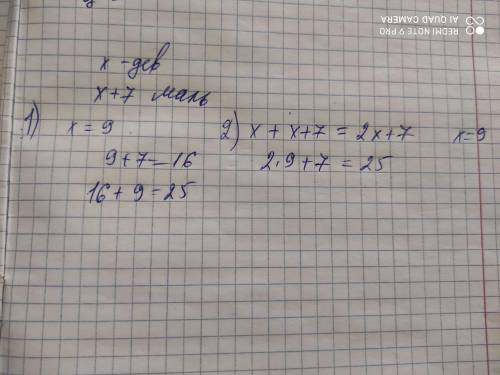 REDMI NOTE 9 PRO
AI QUAD CAMERA
x - дев
x+7 маль
1) x = 9
9+7=16
16+9=25
2) x + x+7 = 2x+7 x=9
2·9+7 = 25